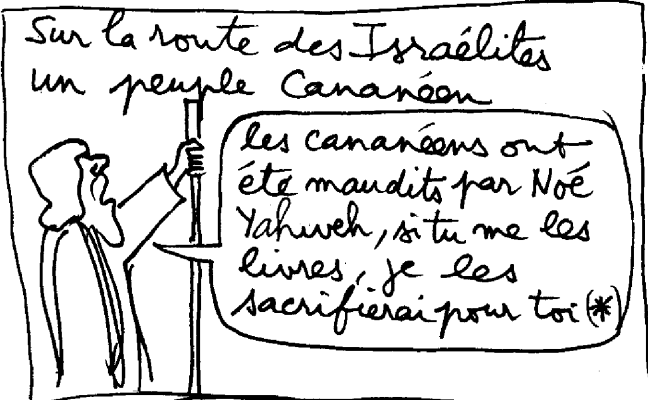 Sur la route des Israélites
un peuple Cananéen
les cananéens ont
été maudits par Noé
Yahweh, si tu me les
livres, je les
sacrifierai pour toi (*)